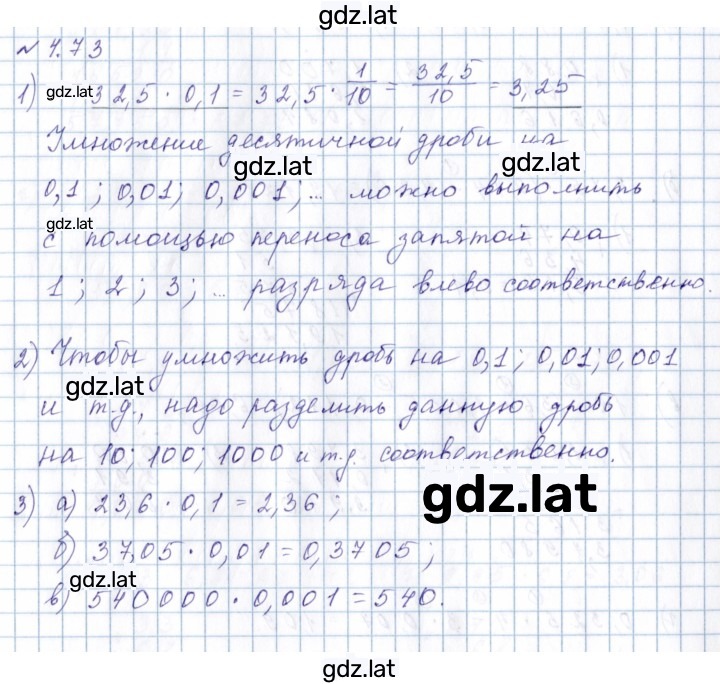 gdz.lat
№ 4.73
1) gdz.lat 32,5 · 0,1 = 32,5 · 1/10 = 32,5/10 = 3,25
Умножение десятичной дроби на
gdz.lat gdz.lat
0,1; 0,01; 0,001; ... можно выполнить
gdz.lat
с помощью переноса запятой на
1; 2; 3; ... разряда влево соответственно.
2) Чтобы умножить дробь на 0,1; 0,01; 0,001
gdz.lat
и т.д., надо разделить данную дробь
на 10; 100; 1000 и т.д. соответственно.
gdz.lat
3) а) 23,6 · 0,1 = 2,36;
б) 37,05 · 0,01 = 0,3705;
gdz.lat
в) 540000 · 0,001 = 540.
gdz.lat